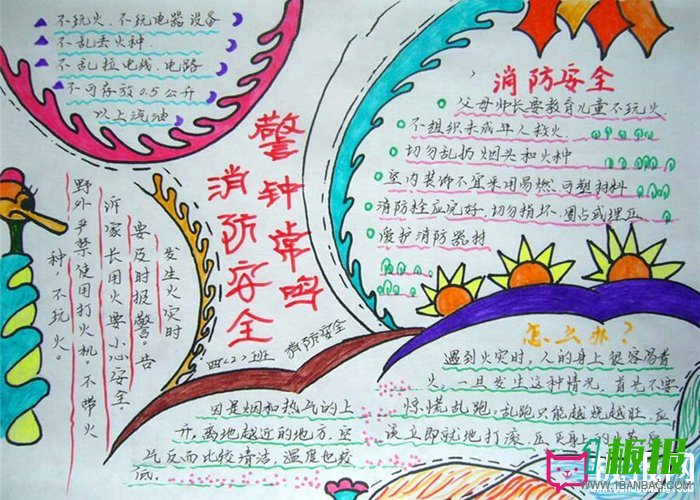 不玩火、不玩电器设备
不乱丢火种.
不乱拉电线.电路
不可存放0.5公升
以上汽油
警钟常鸣
消防安全
四<2>班 消防安全
发生火灾时
要及时报警。告
诉家长用火要小心安全
野外严禁使用打火机。不带火
种不玩火。
消防安全
父母师长要教育儿童不玩火.
不组织未成年人救火.
切勿乱扔烟头和火种
室内装饰不宜采用易燃、可塑材料
消防栓应完好、切勿损坏、圈占或埋压
爱护消防器材
怎么办?
遇到火灾时,人的身上很容易着
火,一旦发生这种情况,首先不要
惊慌乱跑,乱跑只能越烧越旺,应
该立即就地打滚,压灭身上的
因是烟和热气的上
升。离地越近的地方,空
气反而比较清洁,温度也较
低。
板报
WWW.1BANBAO.COM